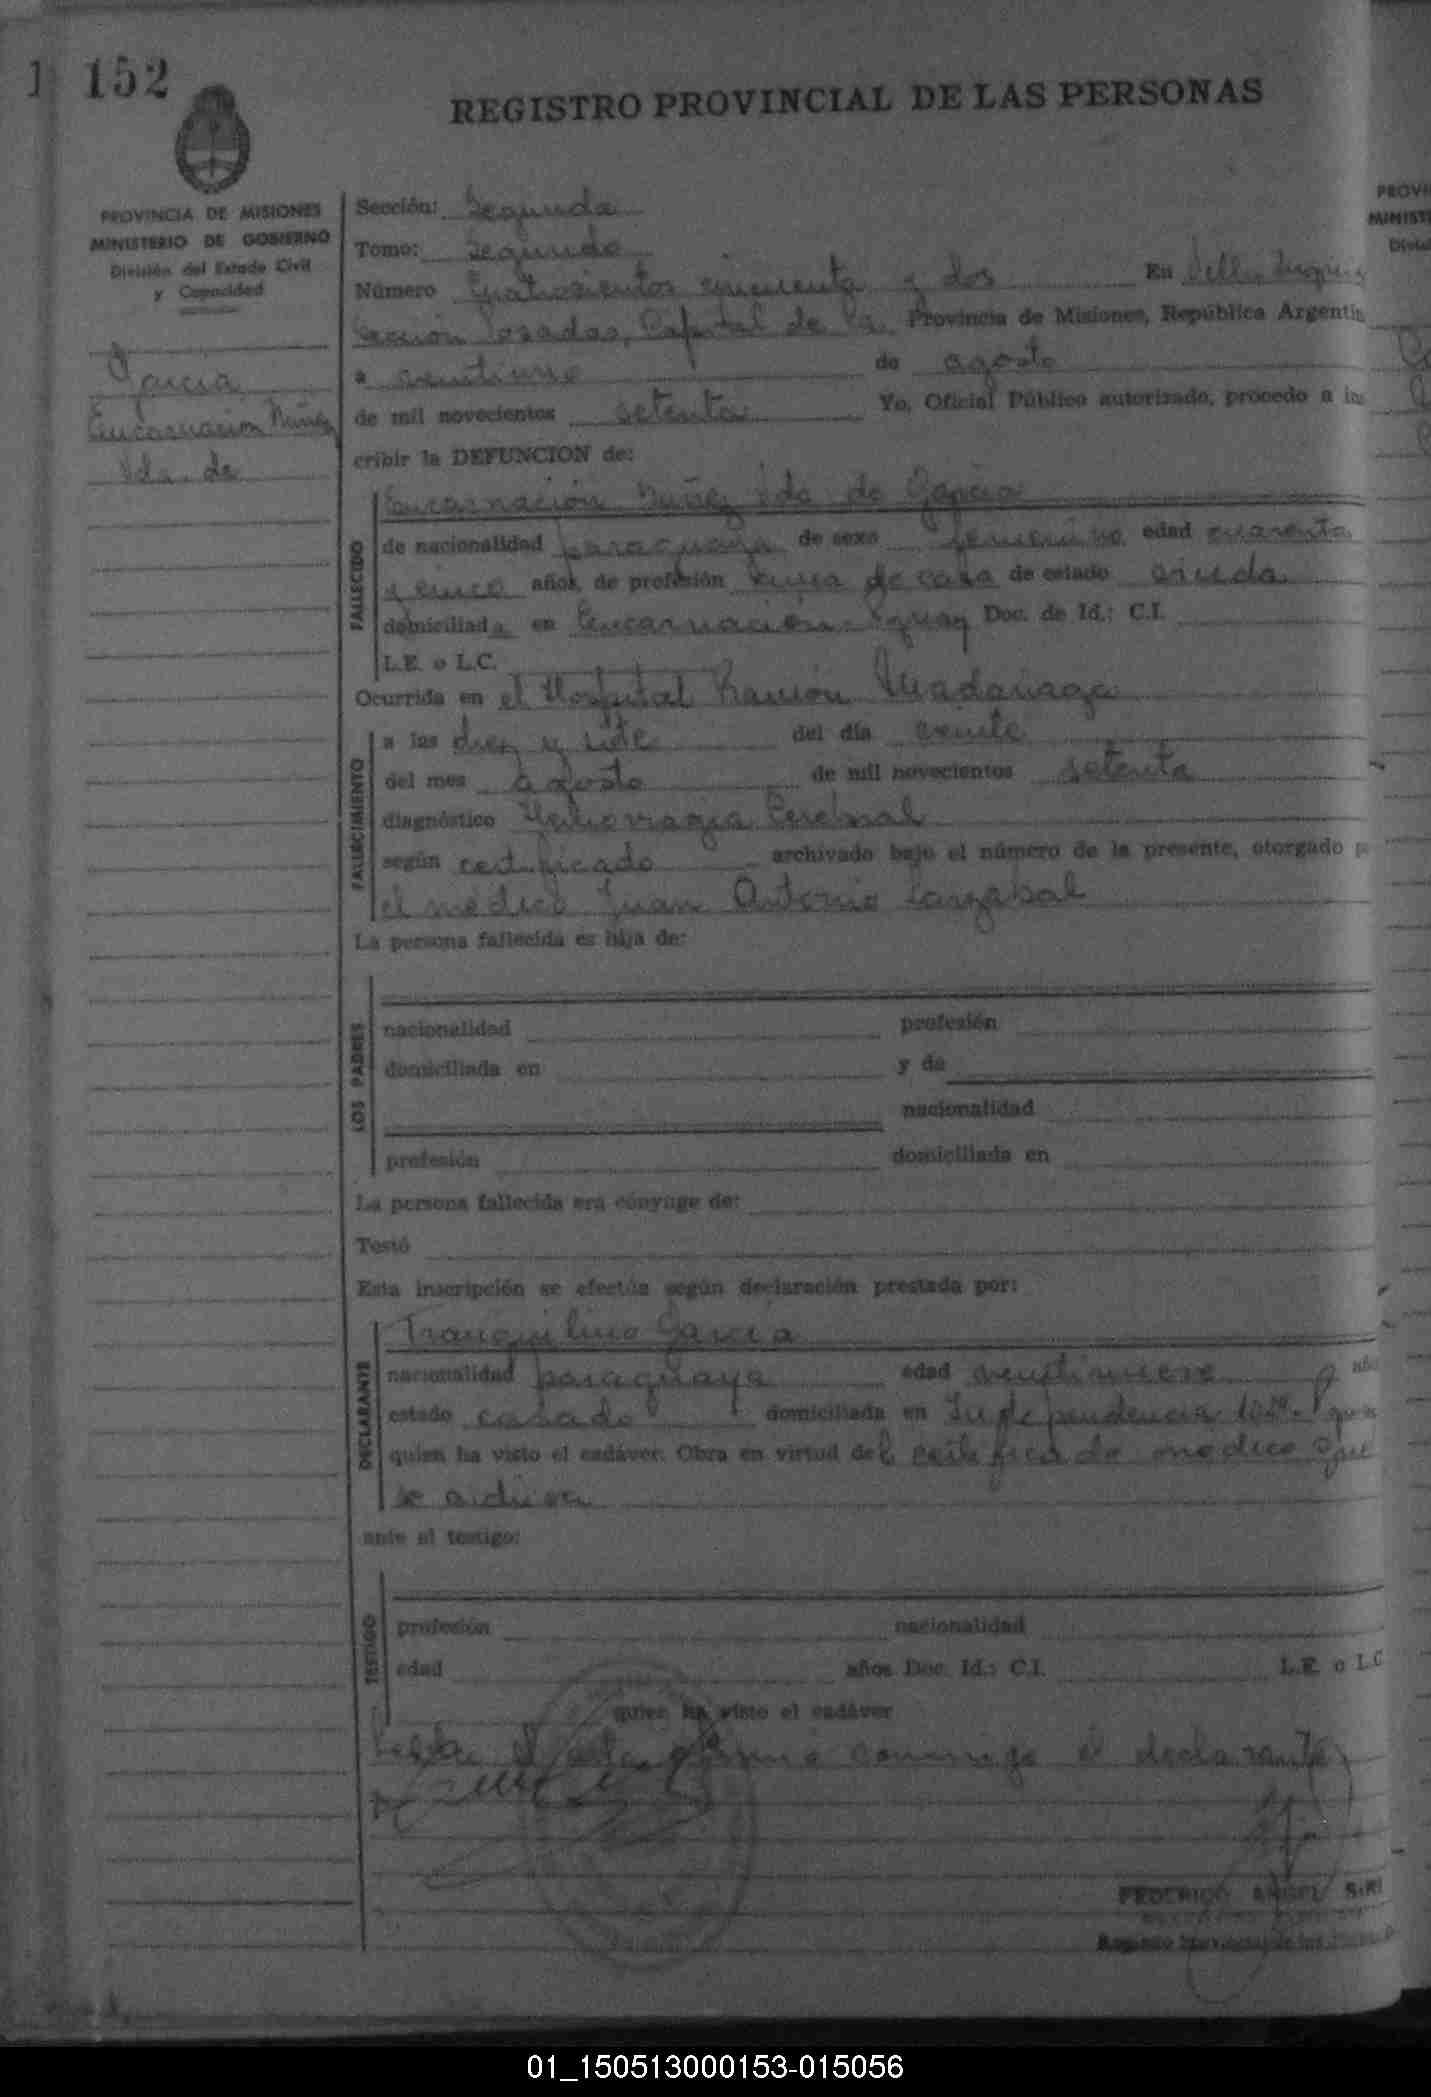 152
REGISTRO PROVINCIAL DE LAS PERSONAS
PROVINCIA DE MISIONES
MINISTERIO DE GOBIERNO
División del Estado Civil
y Capacidad
Garcia
Encarnación Nuñez
Vda. de
Sección: Segunda
Tomo: Segundo
Número Cuatrosientos cincuenta y dos En
Sección Posadas, Capital de la Provincia de Misiones, República Argentin
a veintiuno de agosto
de mil novecientos setenta Yo, Oficial Público autorizado, procedo a ins
cribir la DEFUNCION de:
FALLECIDO
Encarnación Nuñez Vda de Garcia
de nacionalidad paraguaya de sexo femenino edad cuarenta
y cinco años, de profesión ama de casa de estado viuda
domiciliada en Encarnación Doc. de Id.: C.I.
L.E. o L.C.
Ocurrida en el Hospital Ramón Madariaga
FALLECIMIENTO
a las diez y siete del día veinte
del mes agosto de mil novecientos setenta
diagnóstico Cerebral
según certificado archivado bajo el número de la presente, otorgado p
el médico Juan Antonio Larzabal
La persona fallecida es hija de:
LOS PADRES
nacionalidad profesión
domiciliada en y de
nacionalidad
profesión domiciliada en
La persona fallecida era cónyuge de:
Testó
Esta inscripción se efectúa según declaración prestada por:
DECLARANTE
Tranquilino Garcia
nacionalidad paraguaya edad veintinueve añ
estado casado domiciliada en Independencia
quien ha visto el cadáver. Obra en virtud del certificado medico que
se archiva
ante el testigo:
TESTIGO
profesión nacionalidad
edad años Doc. Id.: C.I. L.E. o L.C
quien ha visto el cadáver
Leida el acta firmó conmigo el declarante
FEDERICO ANGEL
01_150513000153-015056